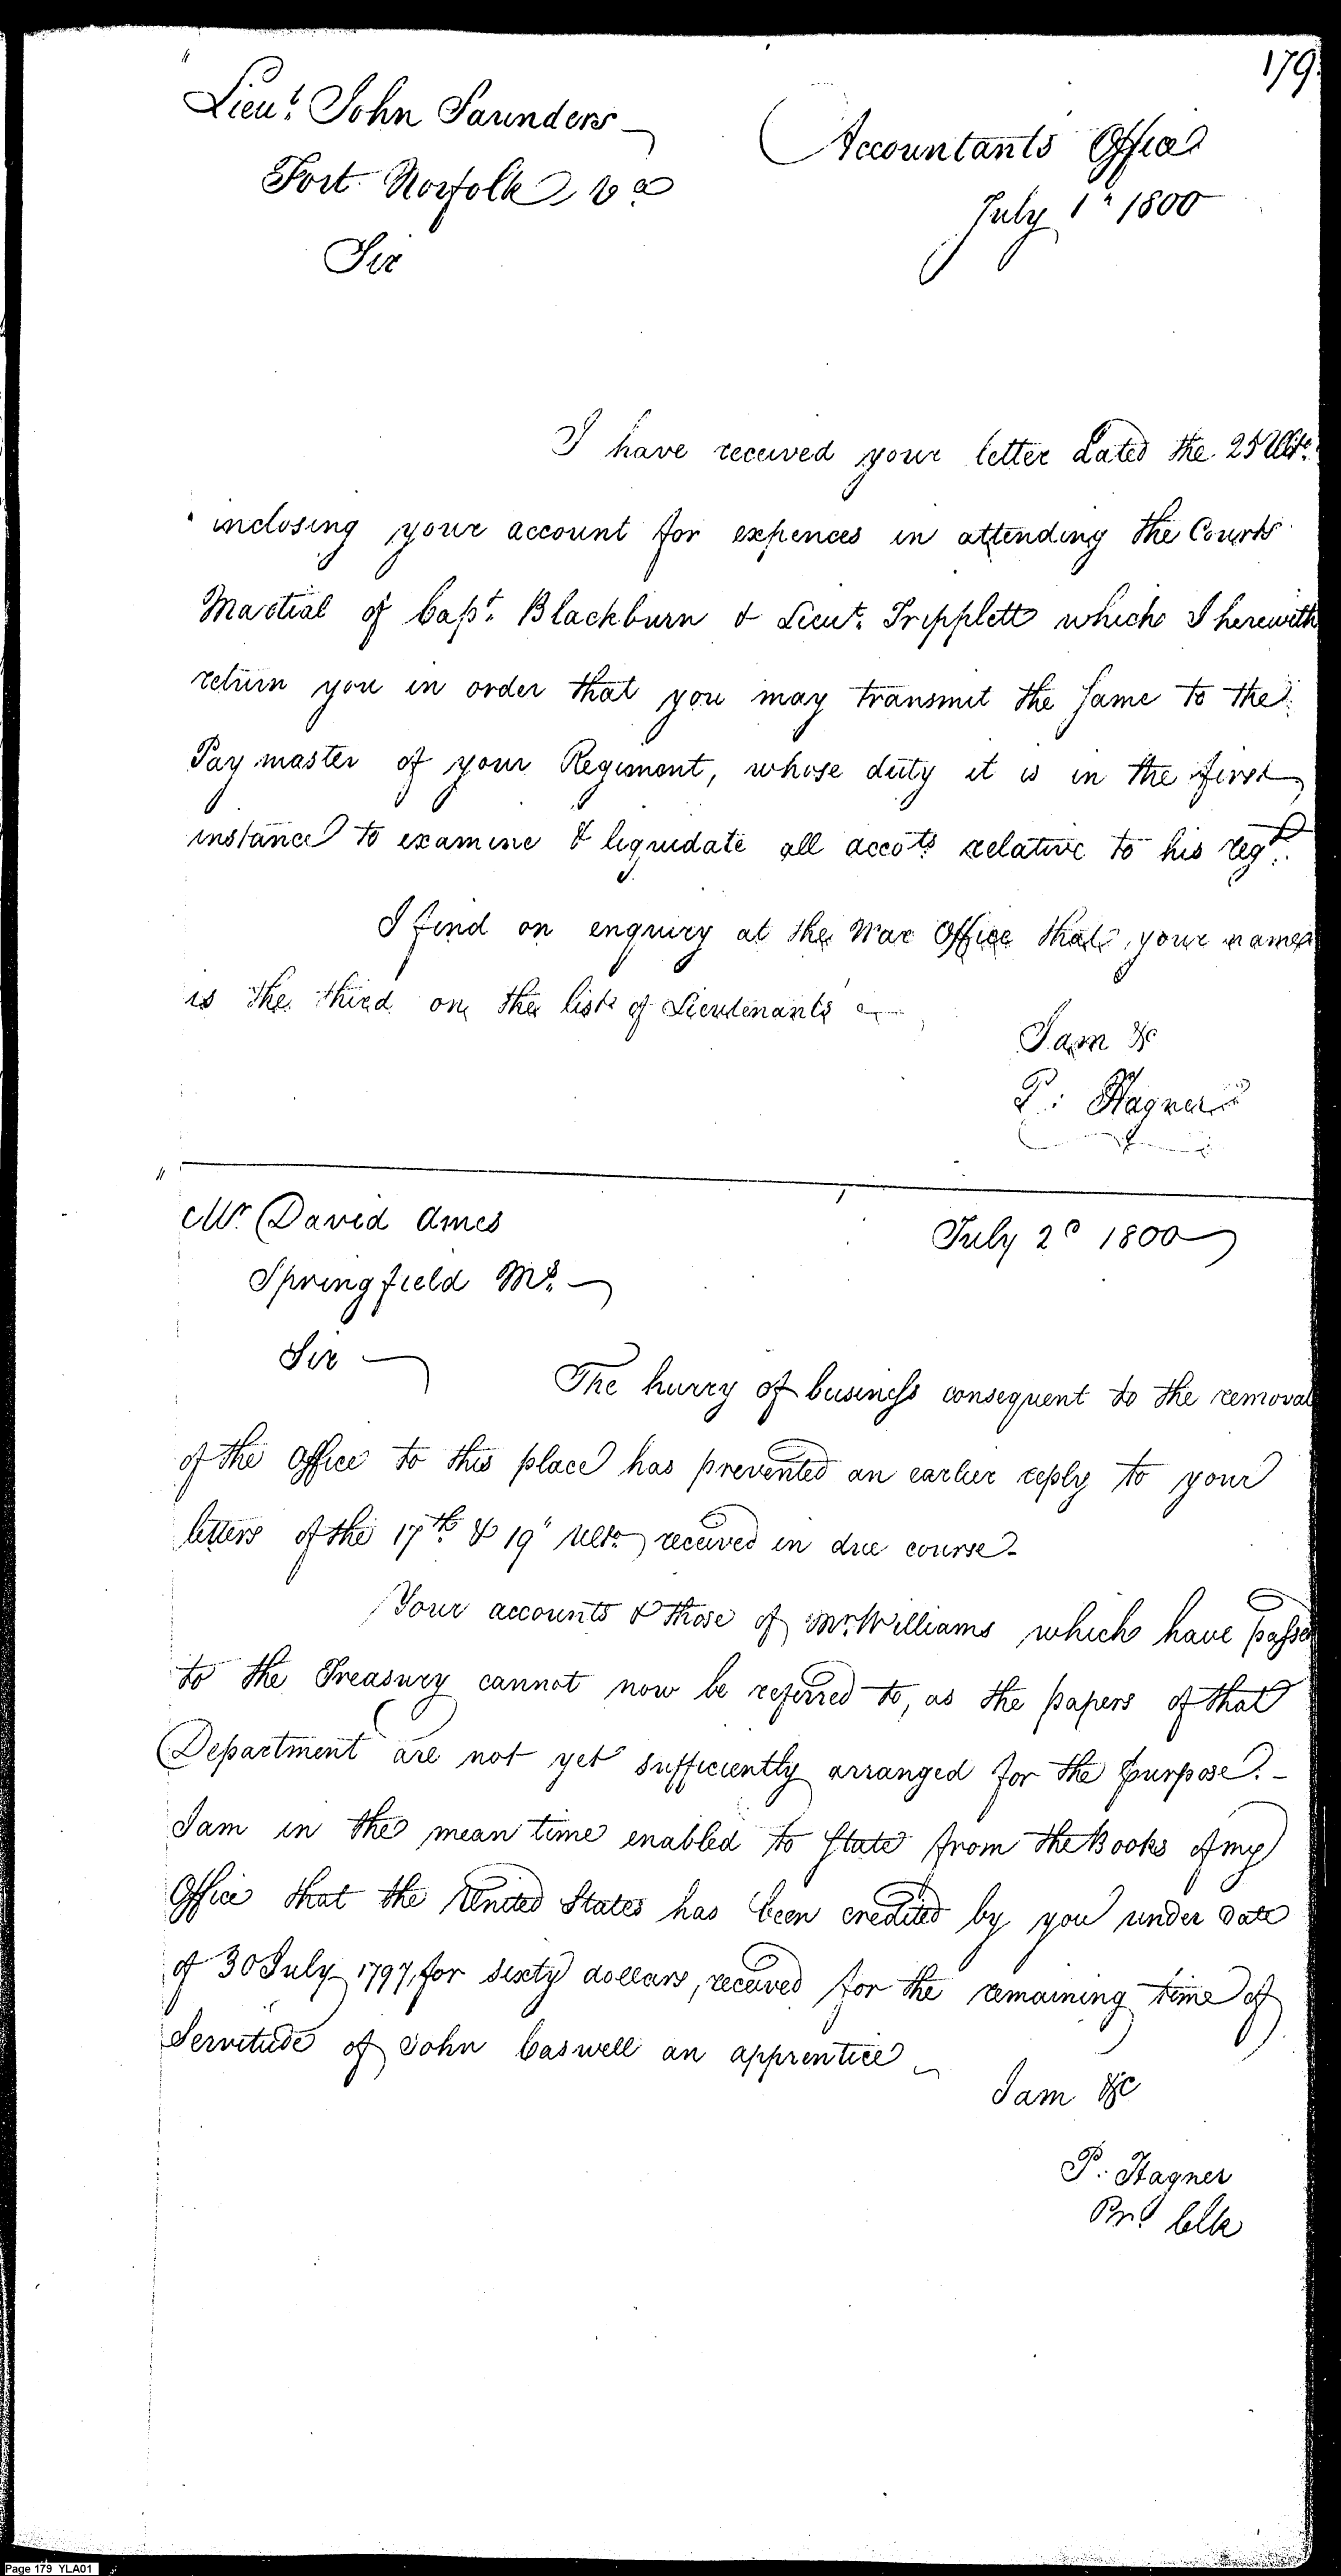 179.
Lieut. John Saunders
Fort Norfolk Va
Accountants Office
July 1" 1800
Sir
I have received your letter dated the 25 Ulto.
inclosing your account for expences in attending the Courts
Martial of Capt. Blackburn & Lieut. Tripplett which I herewith
return you in order that you may transmit the same to the
Pay master of your Regiment, whose duty it is in the first
instance to examine & liquidate all accots relative to his regt.
I find on enquiry at the War Office that your name
is the third on the list of Lieutenants
I am &c
P: Hagner
Mr David Ames
Springfield Ms.
July 2d 1800
Sir
The hurry of business consequent to the removal
of the Office to this place has prevented an earlier reply to your
letters of the 17th & 19" Ulto received in due course-
Your accounts & those of Mr. Williams which have passed
to the Treasury cannot now be referred to, as the papers of that
Department are not yet sufficiently arranged for the purpose.-
I am in the mean time enabled to state from the Books of my
Office that the United States has been credited by you under date
of 30 July 1797, for sixty dollars, received for the remaining time of
Servitude of John Caswell an apprentice
I am &c
P. Hagner
Prl. Clk
Page 179 YLA01